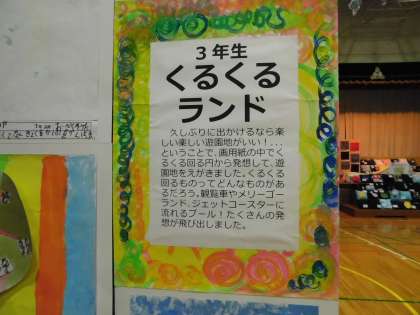 3年生
くるくる
ランド
久しぶりに出かけるなら楽
しい楽しい遊園地がいい！...
ということで、画用紙の中でく
るくる回る円から発想して、遊
園地をえがきました。くるくる
回るものってどんなものがあ
るだろう。観覧車やメリーゴー
ランド、ジェットコースターに
流れるプール！たくさんの発
想が飛び出しました。